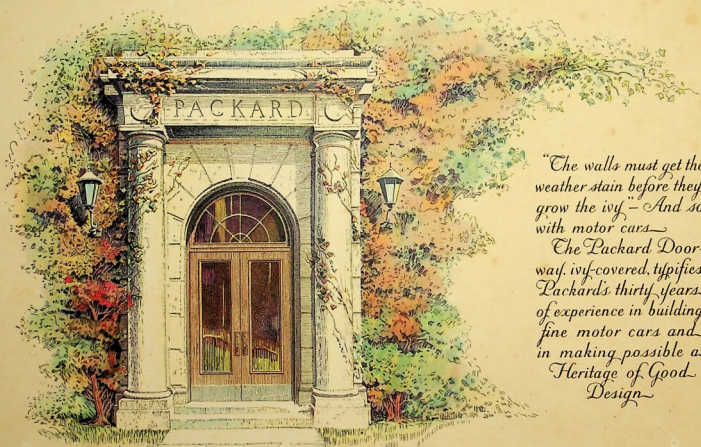 PACKARD
"The walls must get the
weather stain before they
grow the ivy – And so
with motor cars
The Packard Door-
way, ivy-covered, typifies
Packard's thirty years
of experience in building
fine motor cars and
in making possible a
Heritage of Good
Design